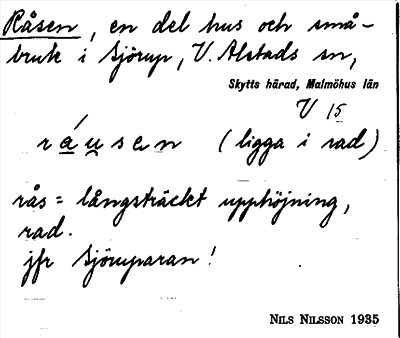 Råsen, en del hus och små-
bruk i Sjörup, V. Alstads sn,
Skytts härad, Malmöhus län
V 15
ráusen (ligga i rad)
rås = långsträckt upphöjning,
rad.
jfr Sjöruparan!
NILS NILSSON 1935